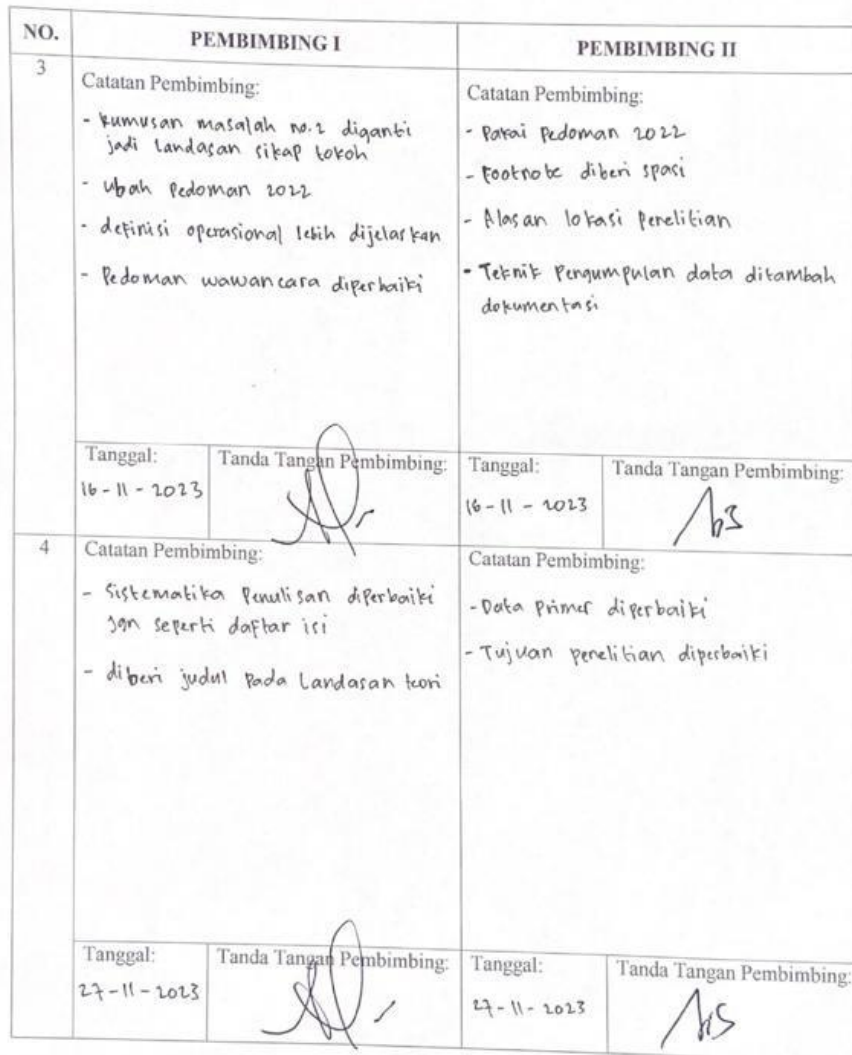 NO.
PEMBIMBING I
PEMBIMBING II
3
Catatan Pembimbing:
- Rumusan masalah no.2 diganti
jadi landasan sikap tokoh
- Ubah Pedoman 2022
- definisi operasional lebih dijelaskan
- Pedoman wawancara diperbaiki
Catatan Pembimbing:
- Pakai Pedoman 2022
- Footnote diberi spasi
- Alasan lokasi Penelitian
- Teknik Pengumpulan data ditambah
dokumentasi
Tanggal:
16-11-2023
Tanda Tangan Pembimbing:
Tanggal:
16-11-2023
Tanda Tangan Pembimbing:
4
Catatan Pembimbing:
- Sistematika Penulisan diperbaiki
jgn seperti daftar isi
- diberi judul Pada Landasan teori
Catatan Pembimbing:
- Data Primer diperbaiki
- Tujuan penelitian diperbaiki
Tanggal:
27-11-2023
Tanda Tangan Pembimbing:
Tanggal:
27-11-2023
Tanda Tangan Pembimbing: